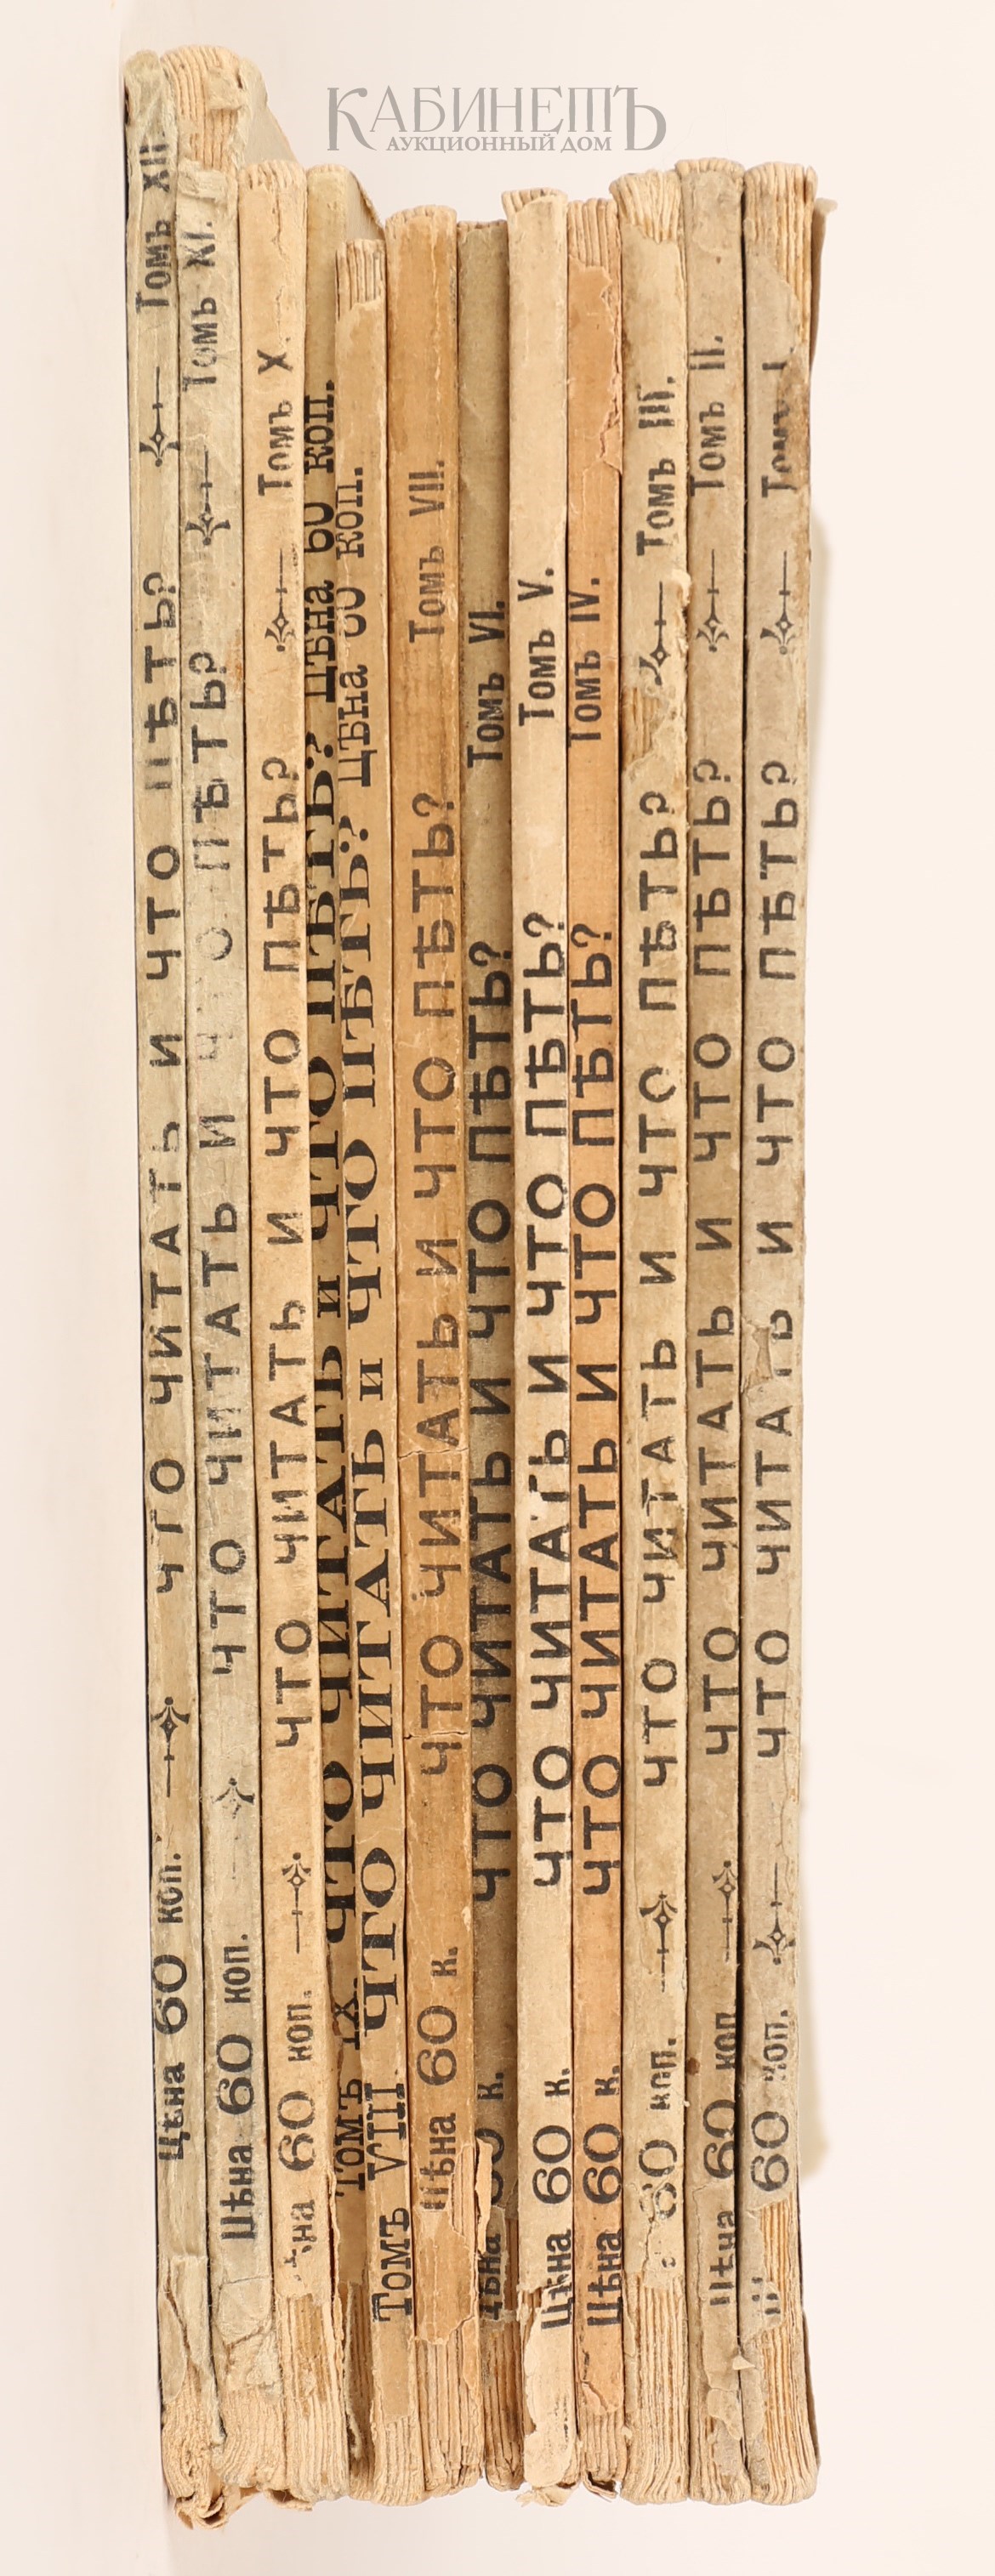 КАБИНЕТЪ
АУКЦИОННЫЙ ДОМ
Цѣна 60 коп. ЧТО ЧИТАТЬ И ЧТО ПѢТЬ? Томъ XII
Цѣна 60 коп. ЧТО ЧИТАТЬ И ЧТО ПѢТЬ? Томъ XI.
60 коп. ЧТО ЧИТАТЬ И ЧТО ПѢТЬ? Томъ X.
Томъ IX. ЧТО ЧИТАТЬ и ЧТО ПѢТЬ? Цѣна 60 коп.
Томъ VIII ЧТО ЧИТАТЬ и ЧТО ПѢТЬ? Цѣна 60 коп.
Цѣна 60 к. ЧТО ЧИТАТЬ И ЧТО ПѢТЬ? Томъ VII.
Цѣна 60 к. ЧТО ЧИТАТЬ И ЧТО ПѢТЬ? Томъ VI.
Цѣна 60 к. ЧТО ЧИТАТЬ И ЧТО ПѢТЬ? Томъ V.
Цѣна 60 к. ЧТО ЧИТАТЬ И ЧТО ПѢТЬ? Томъ IV.
60 коп. ЧТО ЧИТАТЬ И ЧТО ПѢТЬ? Томъ III.
Цѣна 60 коп. ЧТО ЧИТАТЬ И ЧТО ПѢТЬ? Томъ II.
60 коп. ЧТО ЧИТАТЬ И ЧТО ПѢТЬ? Томъ I